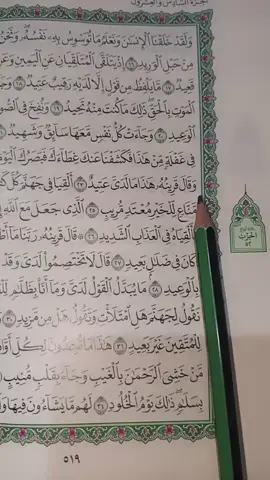 الجزء السادس والعشرون
وَلَقَدْ خَلَقْنَا ٱلْإِنسَٰنَ وَنَعْلَمُ مَا تُوَسْوِسُ بِهِۦ نَفْسُهُۥ وَنَحْنُ
مِنْ حَبْلِ ٱلْوَرِيدِ ١٦ إِذْ يَتَلَقَّى ٱلْمُتَلَقِّيَانِ عَنِ ٱلْيَمِينِ وَعَنِ
قَعِيدٌ ١٧ مَّا يَلْفِظُ مِن قَوْلٍ إِلَّا لَدَيْهِ رَقِيبٌ عَتِيدٌ ١٨
ٱلْمَوْتِ بِٱلْحَقِّ ذَٰلِكَ مَا كُنتَ مِنْهُ تَحِيدُ ١٩ وَنُفِخَ فِى ٱلصُّورِ
ٱلْوَعِيدِ ٢٠ وَجَآءَتْ كُلُّ نَفْسٍ مَّعَهَا سَآئِقٌ وَشَهِيدٌ ٢١
فِى غَفْلَةٍ مِّنْ هَٰذَا فَكَشَفْنَا عَنكَ غِطَآءَكَ فَبَصَرُكَ ٱلْيَوْمَ
وَقَالَ قَرِينُهُۥ هَٰذَا مَا لَدَىَّ عَتِيدٌ ٢٣ أَلْقِيَا فِى جَهَنَّمَ كُلَّ
مَّنَّاعٍ لِّلْخَيْرِ مُعْتَدٍ مُّرِيبٍ ٢٥ ٱلَّذِى جَعَلَ مَعَ ٱللَّهِ
فَأَلْقِيَاهُ فِى ٱلْعَذَابِ ٱلشَّدِيدِ ٢٦ ۞ قَالَ قَرِينُهُۥ رَبَّنَا مَآ
كَانَ فِى ضَلَٰلٍۭ بَعِيدٍ ٢٧ قَالَ لَا تَخْتَصِمُوا۟ لَدَىَّ وَقَدْ
بِٱلْوَعِيدِ ٢٨ مَا يُبَدَّلُ ٱلْقَوْلُ لَدَىَّ وَمَآ أَنَا۠ بِظَلَّٰمٍ
نَقُولُ لِجَهَنَّمَ هَلِ ٱمْتَلَأْتِ وَتَقُولُ هَلْ مِن مَّزِيدٍ ٣٠
لِلْمُتَّقِينَ غَيْرَ بَعِيدٍ ٣١ هَٰذَا مَا تُوعَدُونَ لِكُلِّ أَوَّابٍ
مَّنْ خَشِىَ ٱلرَّحْمَٰنَ بِٱلْغَيْبِ وَجَآءَ بِقَلْبٍ مُّنِيبٍ
بِسَلَٰمٍ ذَٰلِكَ يَوْمُ ٱلْخُلُودِ ٣٤ لَهُم مَّا يَشَآءُونَ فِيهَا
٥١٩